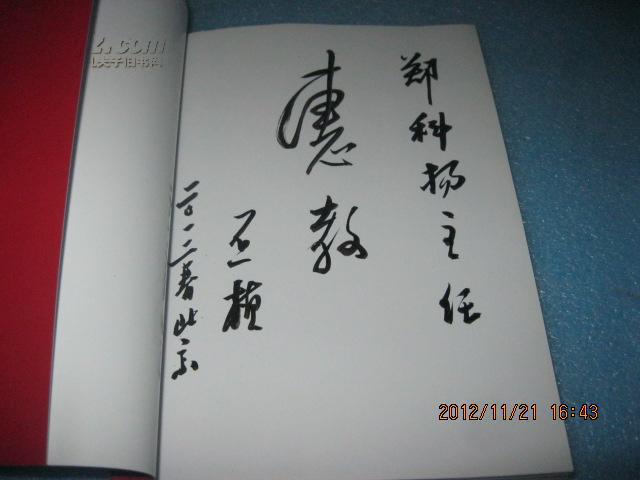 郑科扬主任
惠教
二〇一二春北京
.com
夫子旧书网
2012/11/21 16:43